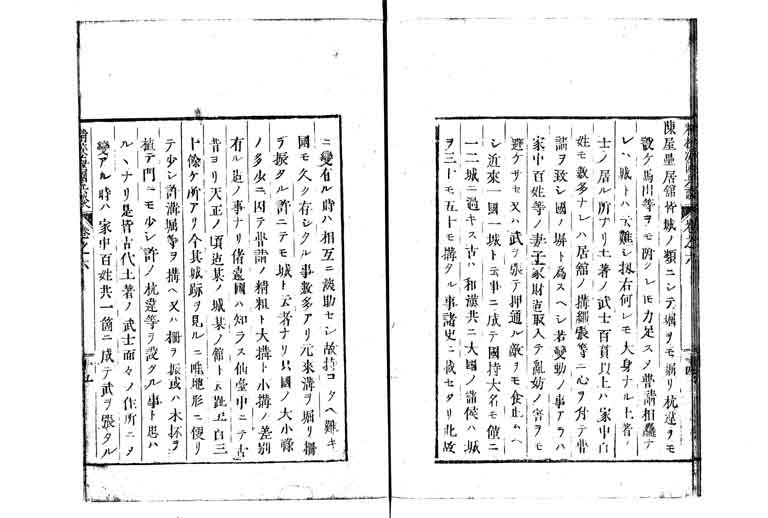 精校海國兵談 卷之六 十四
陳屋壘居舘皆城ノ類ニシテ堀ヲモ堀リ杭違ヲモ
設ケ馬出等ヲモ附クレモ力足ス〆普請相麤テ
レハ城トハ云難シ扨右何レモ大身ナル土著ノ
士ノ居ル所ナリ土著ノ武士百貫以上ハ家中百
姓モ數多ナレハ居舘ノ搆繩張等ニ心ヲ付テ普
請ヲ致シ國ノ塀ト為スヘシ若變動ノ事アラハ
家中百姓等ノ妻子家財迄取入テ亂妨ノ害ヲモ
避ケサセ又ハ武ヲ張テ押通ル敵ヲモ食止ムヘ
シ近來一國一城ト云事ニ成テ國持大名モ僅ニ
一二城ニ過キス古ハ和漢共ニ大國ノ諸侯ハ城
ヲ三十モ五十モ搆タル事諸史ニ載セタリ此故
ニ變有ル時ハ相互ニ救助セシ故持コタヘ難キ
國モ久ク存シタル事數多アリ元來溝ヲ堀リ柵
ヲ振タル許ニテモ城ト云者ナリ只國ノ大小祿
ノ多少ニ因テ普請ノ精粗ト大搆ト小搆ノ差別
有ル迄ノ事ナリ偖遠國ハ知ラス仙臺中ニテ古
昔ヨリ天正ノ頃迄某ノ城某ノ舘ト云趾五百三
十餘ケ所アリ今其城跡ヲ見ルニ唯地形ニ便リ
テ少シ許溝堀等ヲ搆ヘ又ハ柵ヲ振或ハ木抔ヲ
植テ門ニモ少シ許ノ杭違等ヲ設タル事ト思ハ
ルヽナリ是皆古代土著ノ武士面々ノ住所ニヲ
變アル時ハ家中百姓共一箇ニ成テ武ヲ張タル
精校海國兵談 卷之六 十五